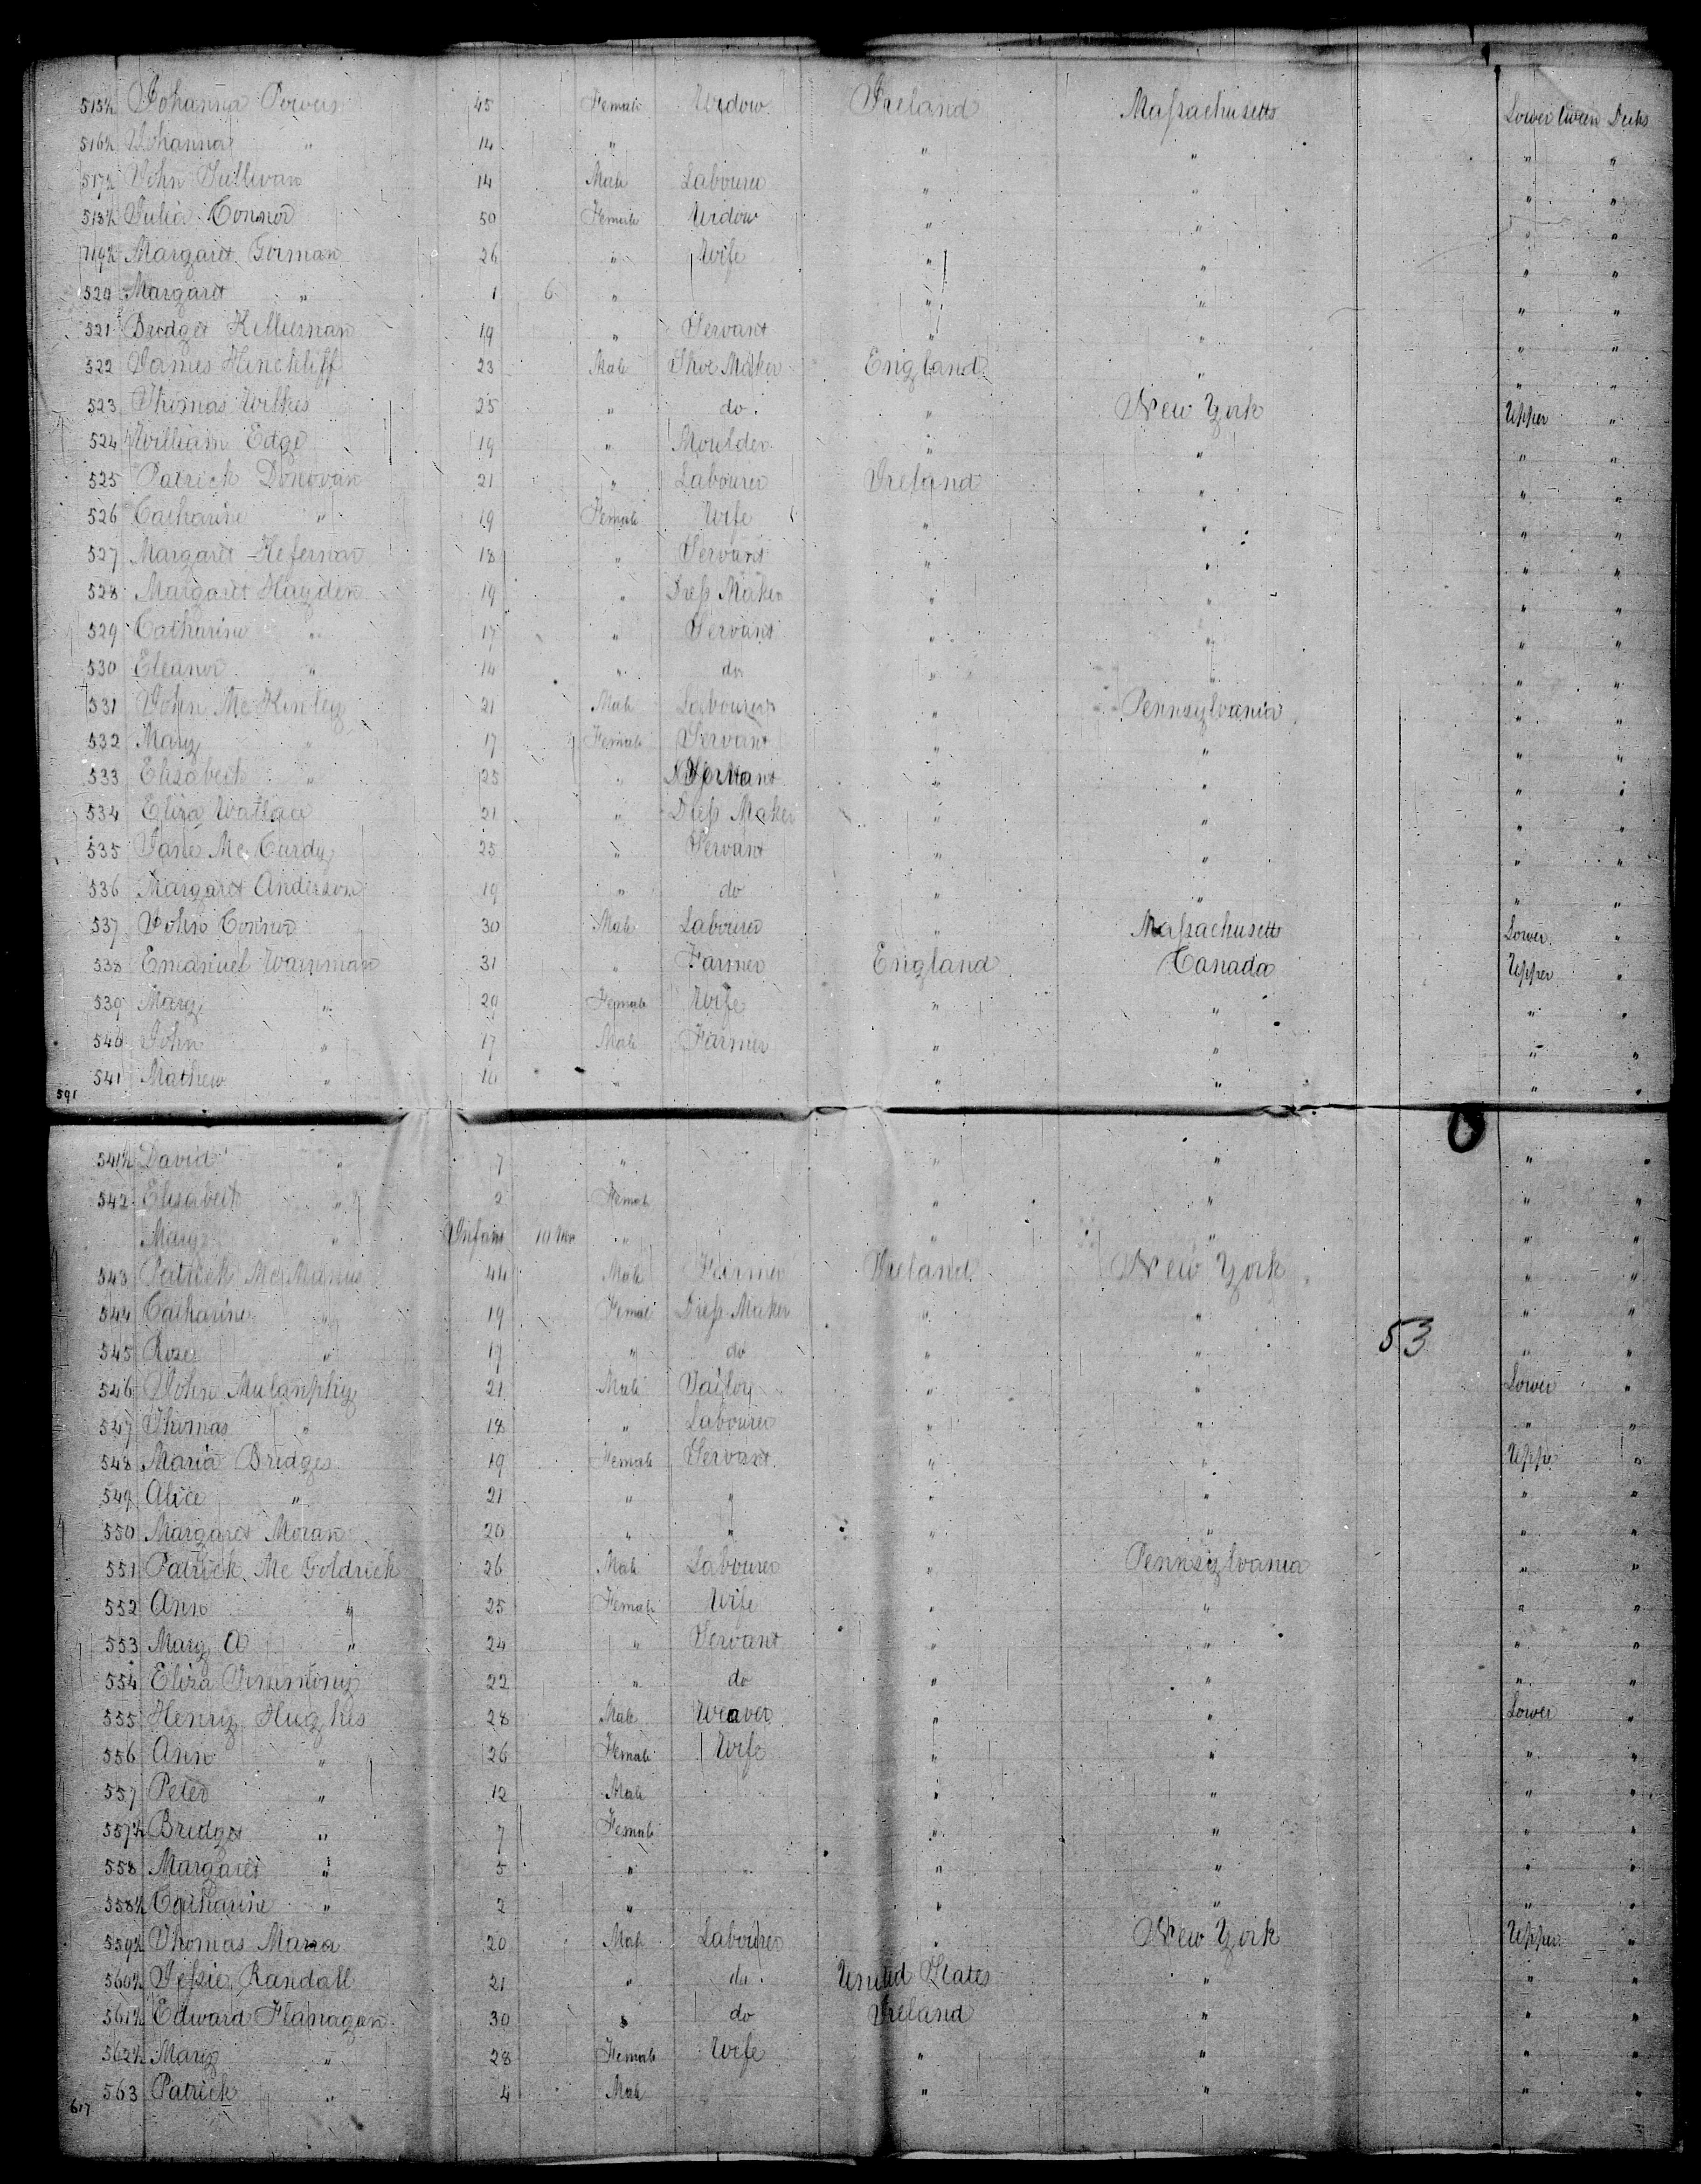 515½ Johanna Powers 45 Female Widow Ireland Massachusetts Lower tween Decks
516½ Johanna " 14 " " " " "
517½ John Sullivan 14 Male Labourer " " " "
518½ Julia Connor 50 Female Widow " " " "
519½ Margaret Gorman 26 " Wife " " " "
520 Margaret " 1 6 " " " " "
521 Bridget Killiernan 19 " Servant " " " "
522 James Hinchliff 23 Male Shoe Maker England " " "
523 Thomas Wilkes 25 " do. " New York Upper "
524 William Edge 19 " Moulder " " " "
525 Patrick Donovan 21 " Labourer Ireland " " "
526 Catharine " 19 Female Wife " " " "
527 Margaret Hefernan 18 " Servant " " " "
528 Margaret Hayden 19 " Dress Maker " " " "
529 Catharine " 17 " Servant " " " "
530 Eleanor " 14 " do " " " "
531 John McKinley 21 Male Labourer " Pennsylvania " "
532 Mary " 17 Female Servant " " " "
533 Elisabeth " 25 " " " " "
534 Eliza Wallace 21 " Dress Maker " " " "
535 Jane McCurdy 25 " Servant " " " "
536 Margaret Anderson 19 " do " " " "
537 John Connor 30 Male Labourer " Massachusetts Lower "
538 Emanuel Wainman 31 " Farmer England Canada Upper "
539 Mary " 29 Female Wife " " " "
540 John " 17 Male Farmer " " " "
541 Mathew " " " " " "
591
541½ David " 7 " " " " "
542 Elisabeth " 2 Female " " " "
Mary " Infant 10 Mos " " " " "
543 Patrick McManus 44 Male Farmer Ireland New York " "
544 Catharine " 19 Female Dress Maker " " " "
53
545 Rose " 17 " do " " " "
546 John Mulanphy 21 Male Tailor " " Lower "
547 Thomas " 18 " Labourer " " " "
548 Maria Bridges 19 Female Servant " " Upper "
549 Alice " 21 " " " " " "
550 Margaret Moran 20 " " " " " "
551 Patrick McGoldrick 26 Male Labourer " Pennsylvania " "
552 Ann " 25 Female Wife " " " "
553 Mary A " 24 " Servant " " " "
554 Eliza 22 " do " " " "
555 Henry Hughes 28 Male Weaver " " Lower "
556 Ann " 26 Female Wife " " " "
557 Peter " 12 Male " " " "
557½ Bridget " 7 Female " " " "
558 Margaret " 5 " " " " "
558½ Catharine " 2 " " " " "
559½ Thomas Mara 20 Male Labourer " New York Upper "
560½ Jessie Randall 21 " do. United States " " "
561½ Edward Flanagan 30 " do Ireland " " "
562½ Mary " 28 Female Wife " " " "
563 Patrick " 4 Male " " " "
617